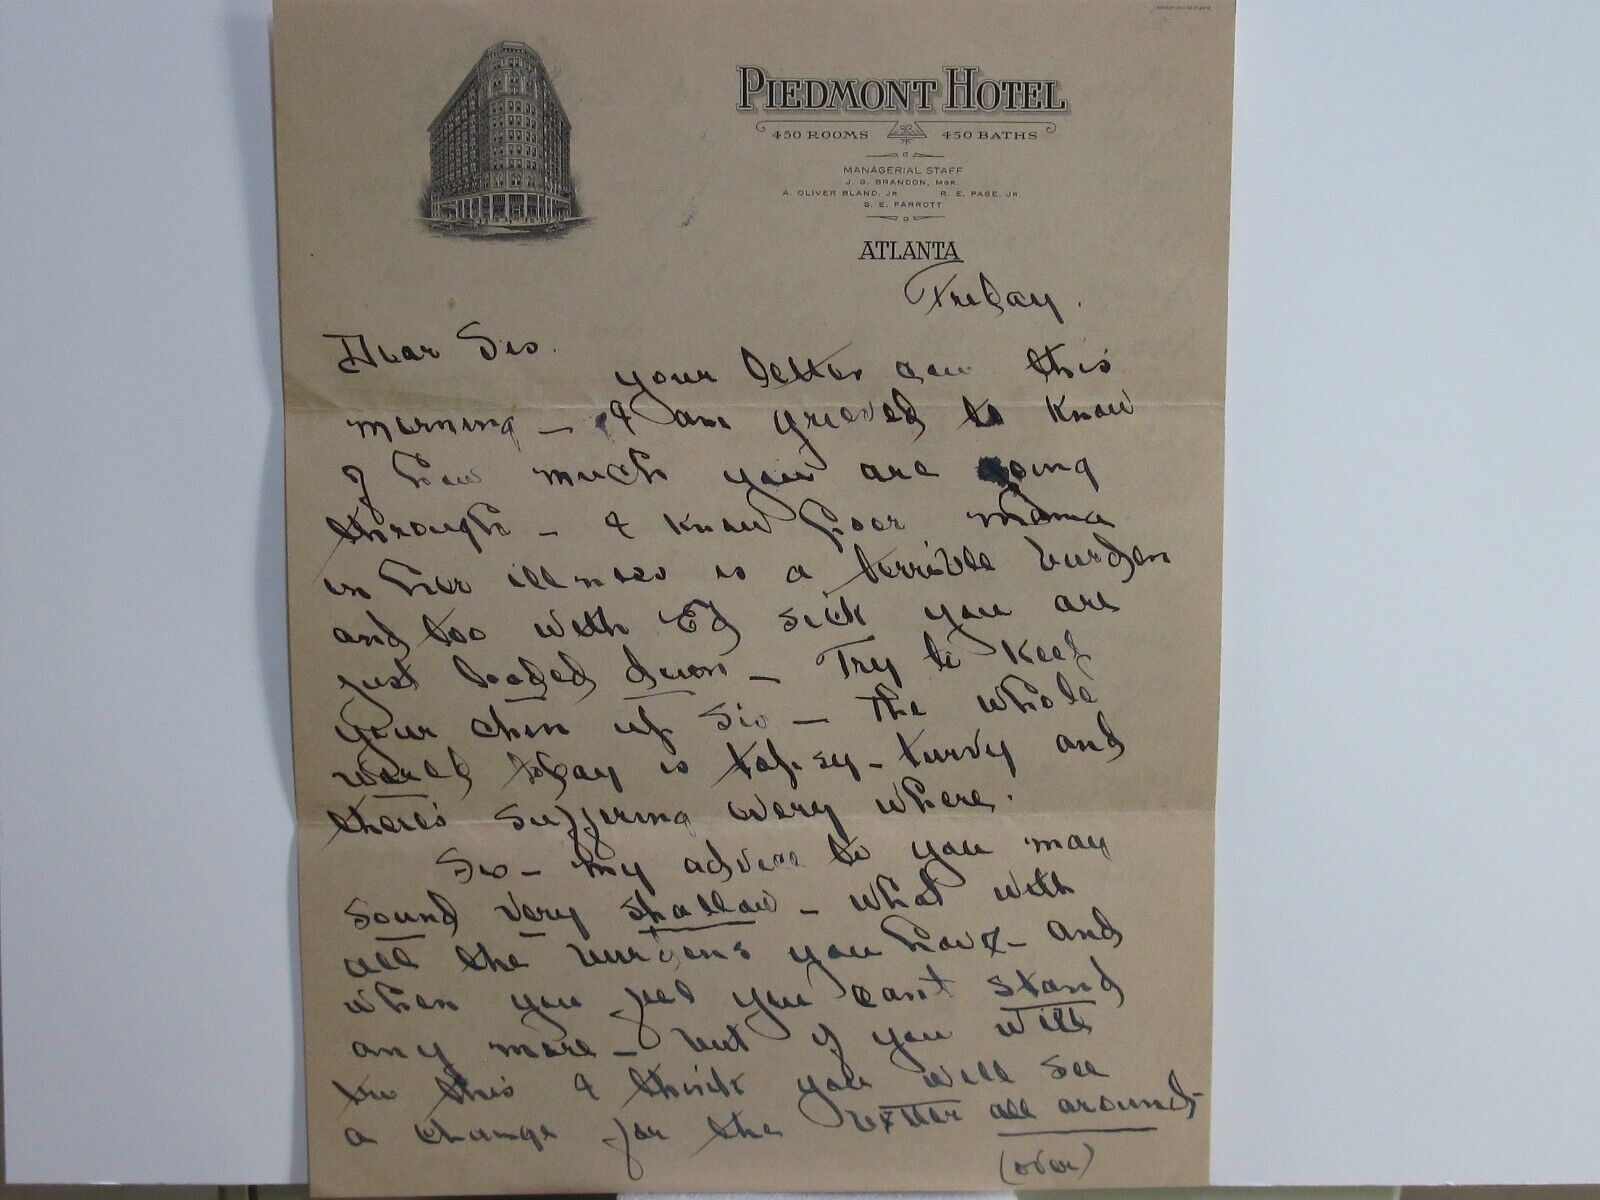 PIEDMONT HOTEL
450 ROOMS 450 BATHS
MANAGERIAL STAFF
J. G. BRANDON, MGR.
A. OLIVER BLAND, JR. R. E. PAGE, JR.
S. E. PARROTT
ATLANTA
Friday.
Dear Sis.
your letter came this
morning - I am grieved to know
of how much you are going
through - I know poor mama
in her illness is a terrible burden
and too with Ed sick you are
just loaded down - Try to keep
your chin up Sis - The whole
world today is topsy-turvy and
there's suffering every where.
Sis - my advice to you may
sound very shallow - what with
all the burdens you have - and
when you feel you can't stand
any more - but if you will
do this I think you will see
a change for the better all around -
(over)